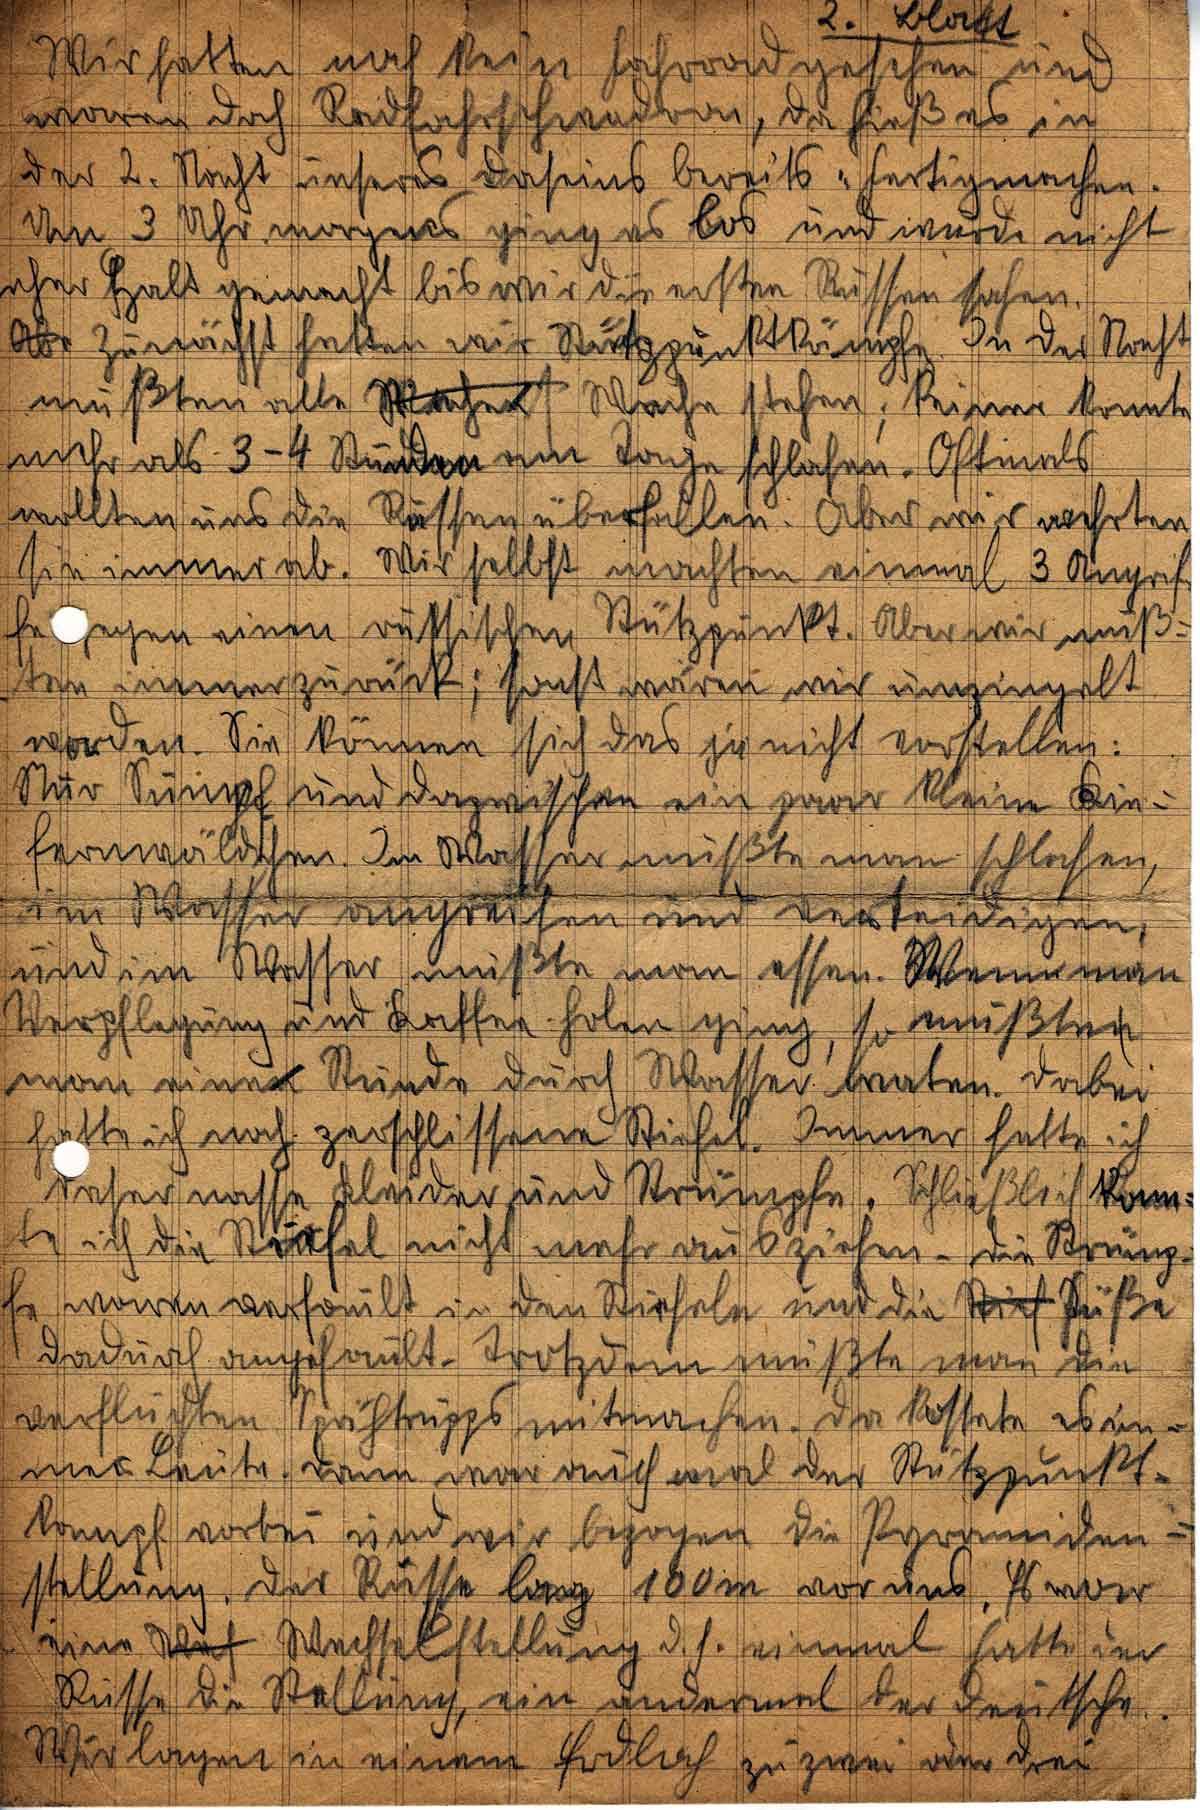 2. Blatt
Wir hatten noch kein Fahrrad gesehen und
waren doch Radfahrschwadron, da hieß es in
der 2. Nacht unseres Daseins bereits "fertigmachen.
Um 3 Uhr morgens ging es los und wurde nicht
eher Halt gemacht bis wir die ersten Russen sahen.
Zunächst hatten wir Stützpunktkämpfe. In der Nacht
mußten alle Wache stehen; keiner konnte
mehr als 3-4 Stunden am Tage schlafen. Oftmals
wollten uns die Russen überfallen. Aber wir wehrten
sie immer ab. Wir selbst machten einmal 3 Angrif-
fe gegen einen russischen Stützpunkt. Aber wir muß-
ten immer zurück; sonst wären wir umzingelt
worden. Sie können sich das ja nicht vorstellen:
Nur Sumpf und dazwischen ein paar kleine Kie-
fernwäldchen. Im Wasser mußte man schlafen,
im Wasser angreifen und verteidigen,
und im Wasser mußte man essen. Wenn man
Verpflegung und Kaffee holen ging, so mußte
man eine Stunde durch Wasser waten. Dabei
hatte ich noch zerschlissene Stiefel. Immer hatte ich
daher nasse Kleider und Strümpfe. Schließlich konn-
te ich die Stiefel nicht mehr ausziehen. Die Strümp-
fe waren verfault in den Stiefeln und die Füße
dadurch angefault. Trotzdem mußte man die
verfluchten Spähtrupps mitmachen. Da kostete es im-
mer Leute. Dann war auch mal der Stützpunkt-
kampf vorbei und wir bezogen die Pyramiden-
stellung. Der Russe lag 100m vor uns. Es war
eine Wechselstellung d.h. einmal hatte der
Russe die Stellung, ein andermal der Deutsche.
Wir lagen in einem Erdloch zu zwei oder drei